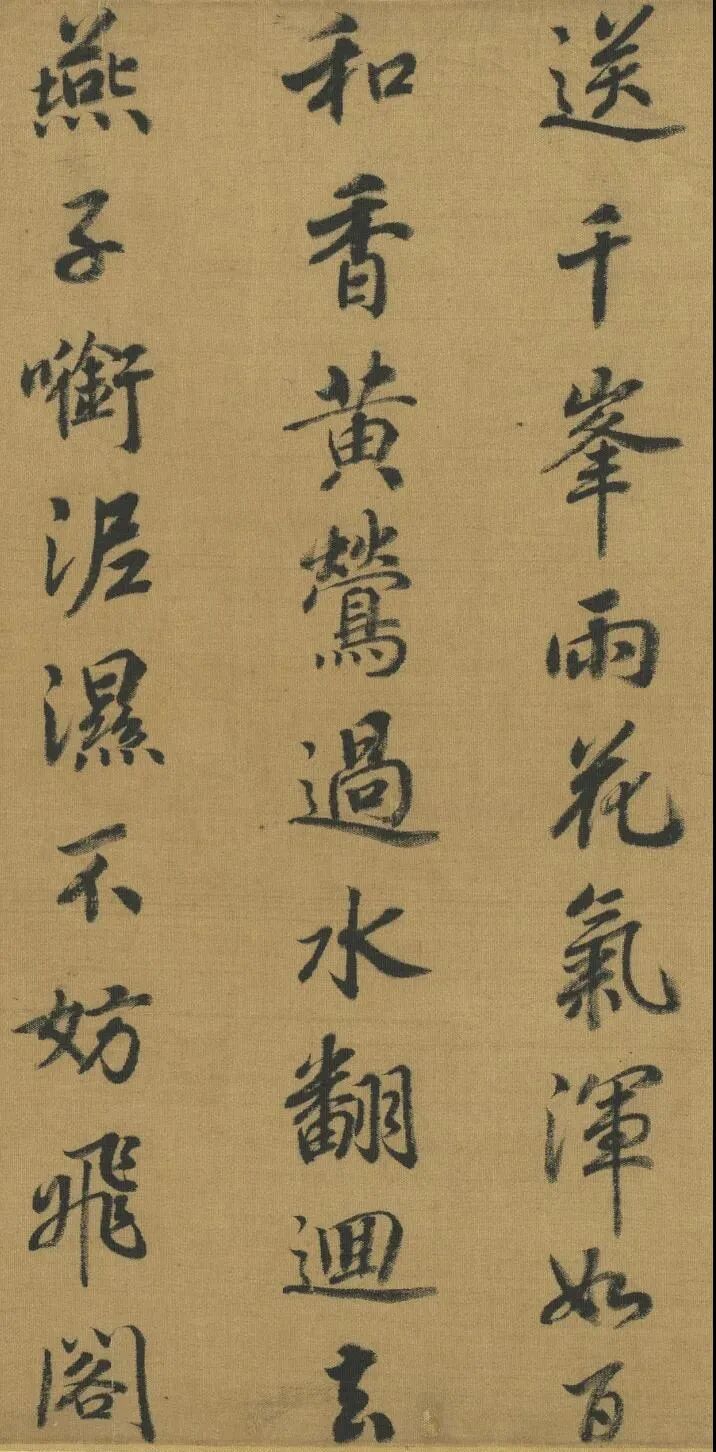 送千峯雨花氣渾如百
和香黄鶯過水翻迴去
燕子㘅泥濕不妨飛閣